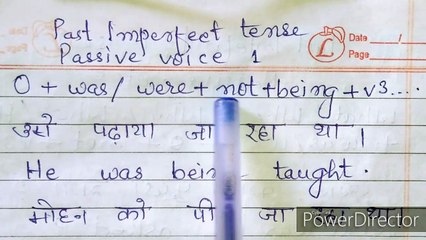 Past Imperfect tense
Passive voice 1
Date
Page
O + was/ were + not + being + v3....
उसे पढ़ाया जा रहा था।
He was bein taught.
मोहन को पी जा था
PowerDirector